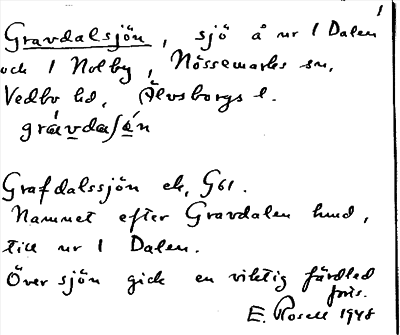 1
Gravdalsjön, sjö å nr 1 Dalen
och 1 Nolby, Nössemarks sn,
Vedbo hd, Älvsborgs l.
Grafdalssjön ek, G61.
Namnet efter Gravdalen hmd,
till nr 1 Dalen.
Över sjön gick en viktig färdled
förr.
E. Rosell 1948